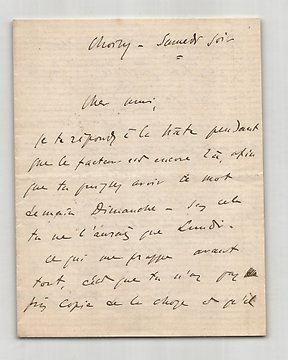 Choisy – Samedi soir
Cher ami,
je te réponds à la hâte pendant
que le facteur est encore là, afin
que tu puisses avoir ce mot
demain Dimanche –
tu ne l'aurais que Lundi.
ce qui me frappe avant
tout, c'est que tu n'as pas
pris copie de la chose et qu'il